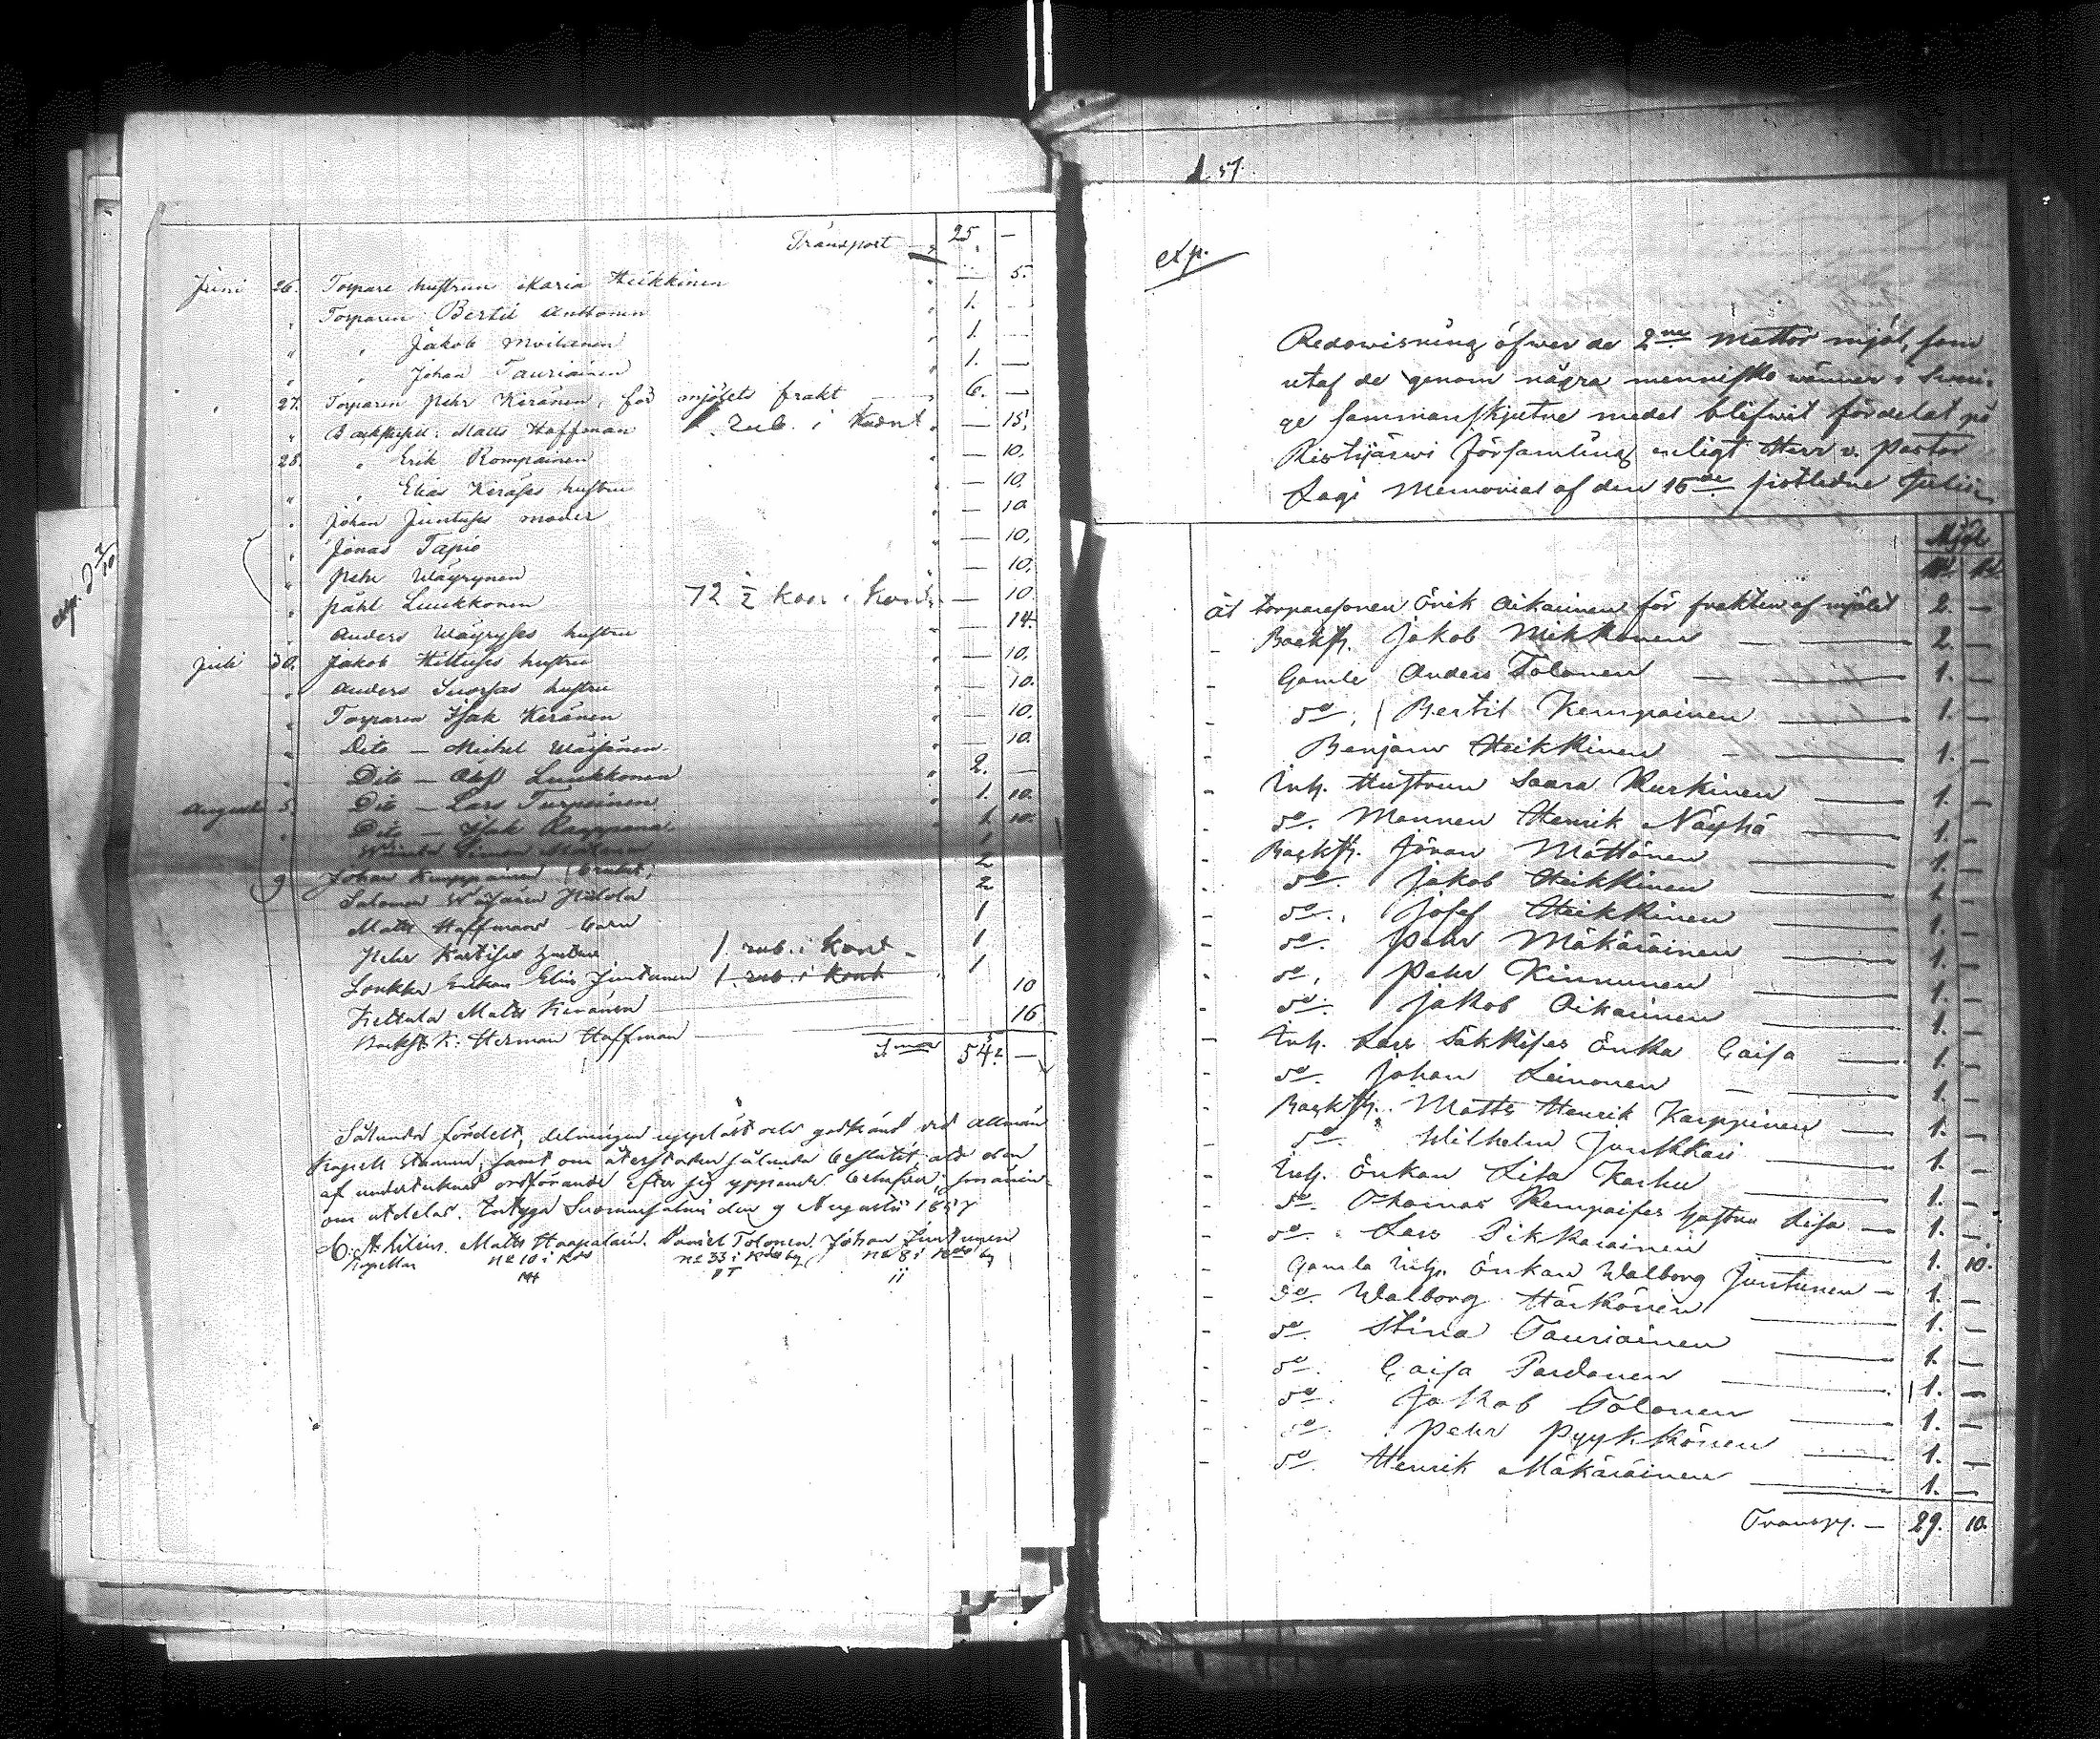 Transport 25. —
Juni 26. Torpare hustrun Maria Heikkinen — 5.
" Torparen Bertil Anttonen 1. —
" " Jakob Moilanen 1. —
" " Johan Tauriainen 1. —
" 27. Torparen Pehr Keränen, för mjölets frakt 6. —
" Matts Hoffman 1. rub. i — 15.
28. " Erik Rompainen — 10.
" " Elias Keräses hustru — 10.
" Johan Juntuses moder — 10
" Jonas Tapio — 10.
" Pehr Wäyrynen — 10.
" Påhl Luukkonen — 10
" Anders Wäyryses hustru — 14.
Juli 30. Jakob Hiltuses hustru — 10.
" Anders hustru — 10.
" Torparen Isak Keränen — 10.
" Dito — Michel Wäisänen — 10.
" Dito — Olof Luukkonen 2. —
Augusti 5. Dito — Lars Turpeinen 1. 10.
" Dito — Isak 1. 10.
Simon 1
9 Johan 2
Salomon 2
Matts Hoffmans barn 1
Pehr hustru 1. rub. i 1
Enkan Elin Juntunen 1. rub. i 1
Matts Keränen 10
Herman Hoffman 16
Summa 54 —
Sålunda fördelt, delningen uppläst och godkänd vid Allmän
samt om återstoden sålunda beslutit, att den
af undertecknad ordförande efter sig yppande behofver, småning-
om utdelas. Intyga Suomusalmi den 9 Augusti 1857
Matts Haapalain. Daniel Tolonen. Johan Juntunen
No 10 i No 33 i No 8 i
57.
exp.
Redowisning öfwer de 2ne Mattor mjöl, som
utaf de genom några mennisko wänner i Sweri-
ge sammanskjutne medel blifwit fördelat på
Ristijärwi församling enligt Herr v. Pastor
Memorial af den 15de sistledne Julii
Mjöl
åt torparesonen Erik Oikarinen för frakten af mjölet 2. —
- Backst. Jakob Mikkonen 2. —
- Gamle Anders Tolonen 1. —
- do. Bertil Kemppainen 1. —
- Benjam Heikkinen 1. —
- Inh. Hustrun Saara Kurkinen 1. —
- do. Mannen Henrik Näyhä 1. —
- Backst. Jöran Määttänen 1. —
- do. Jakob Heikkinen 1. —
- do. Josef Heikkinen 1. —
- do. Pehr Mäkäräinen 1. —
- do. Pehr Kinnunen 1. —
- do. Jakob Oikarinen 1. —
- Inh. Lars Säkkises Enka Caisa 1. —
- do. Johan Leinonen 1. —
- Backst. Matts Henrik Karppinen 1. —
- do. Wilhelm Junkkari 1. —
- Inh. Enkan Lisa Karhu 1. —
- do. Thomas Kempaises hustru Lisa 1. —
- do. Lars Pikkarainen 1. 10.
- Gamla inh. Enkan Walborg Juntunen 1. —
- do. Walborg Härkönen 1. —
- do. Stina Tauriainen 1. —
- do. Caisa Pardanen 1. —
- do. Jakob Tolonen 1. —
- do. Pehr Pyykkönen 1. —
- do. Henrik Mäkäräinen 1. —
Transp. — 29. 10.